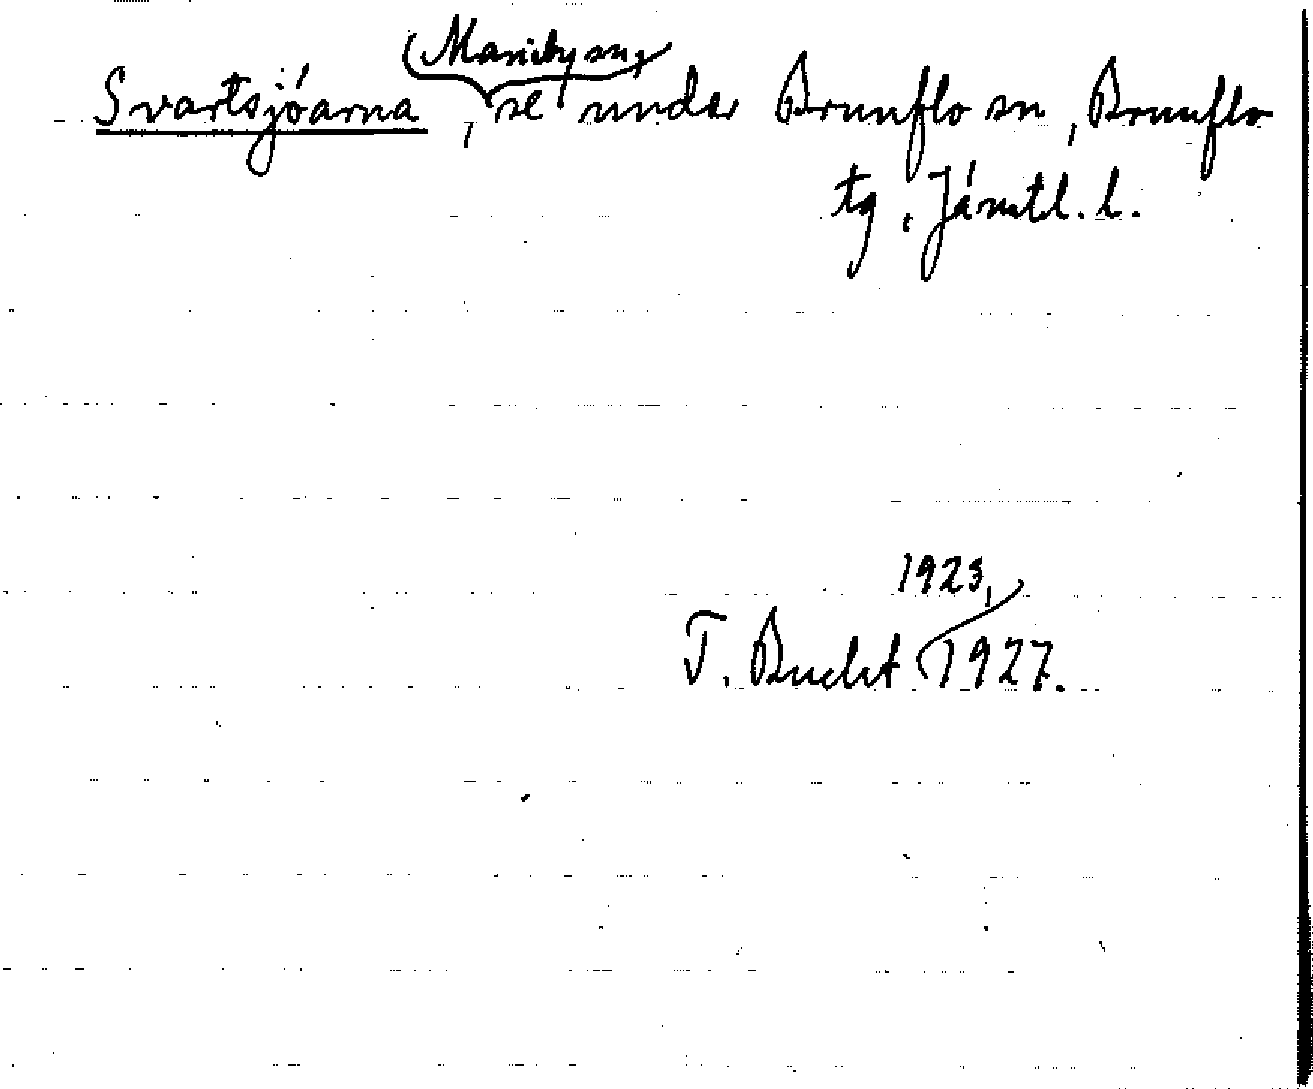 Marieby sn,
Svartsjöarna, se under Brunflo sn, Brunflo
tg. Jämtl. l.
1923,
T. Bucht 1927.